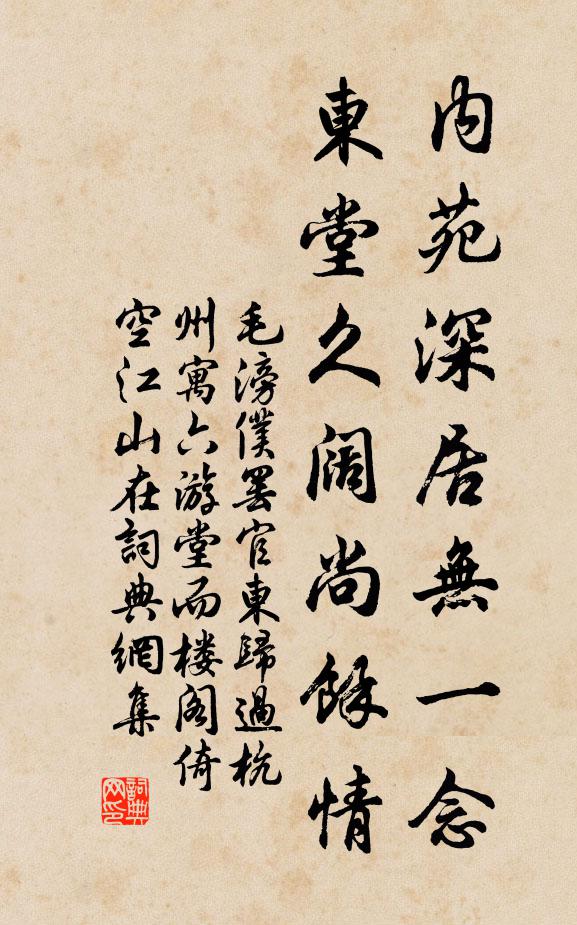 內苑深居無一念
東堂久闊尚餘情
毛滂僕罷官東歸過杭
州寓六游堂而楼阁倚
空江山在詞典網集
詞典网印